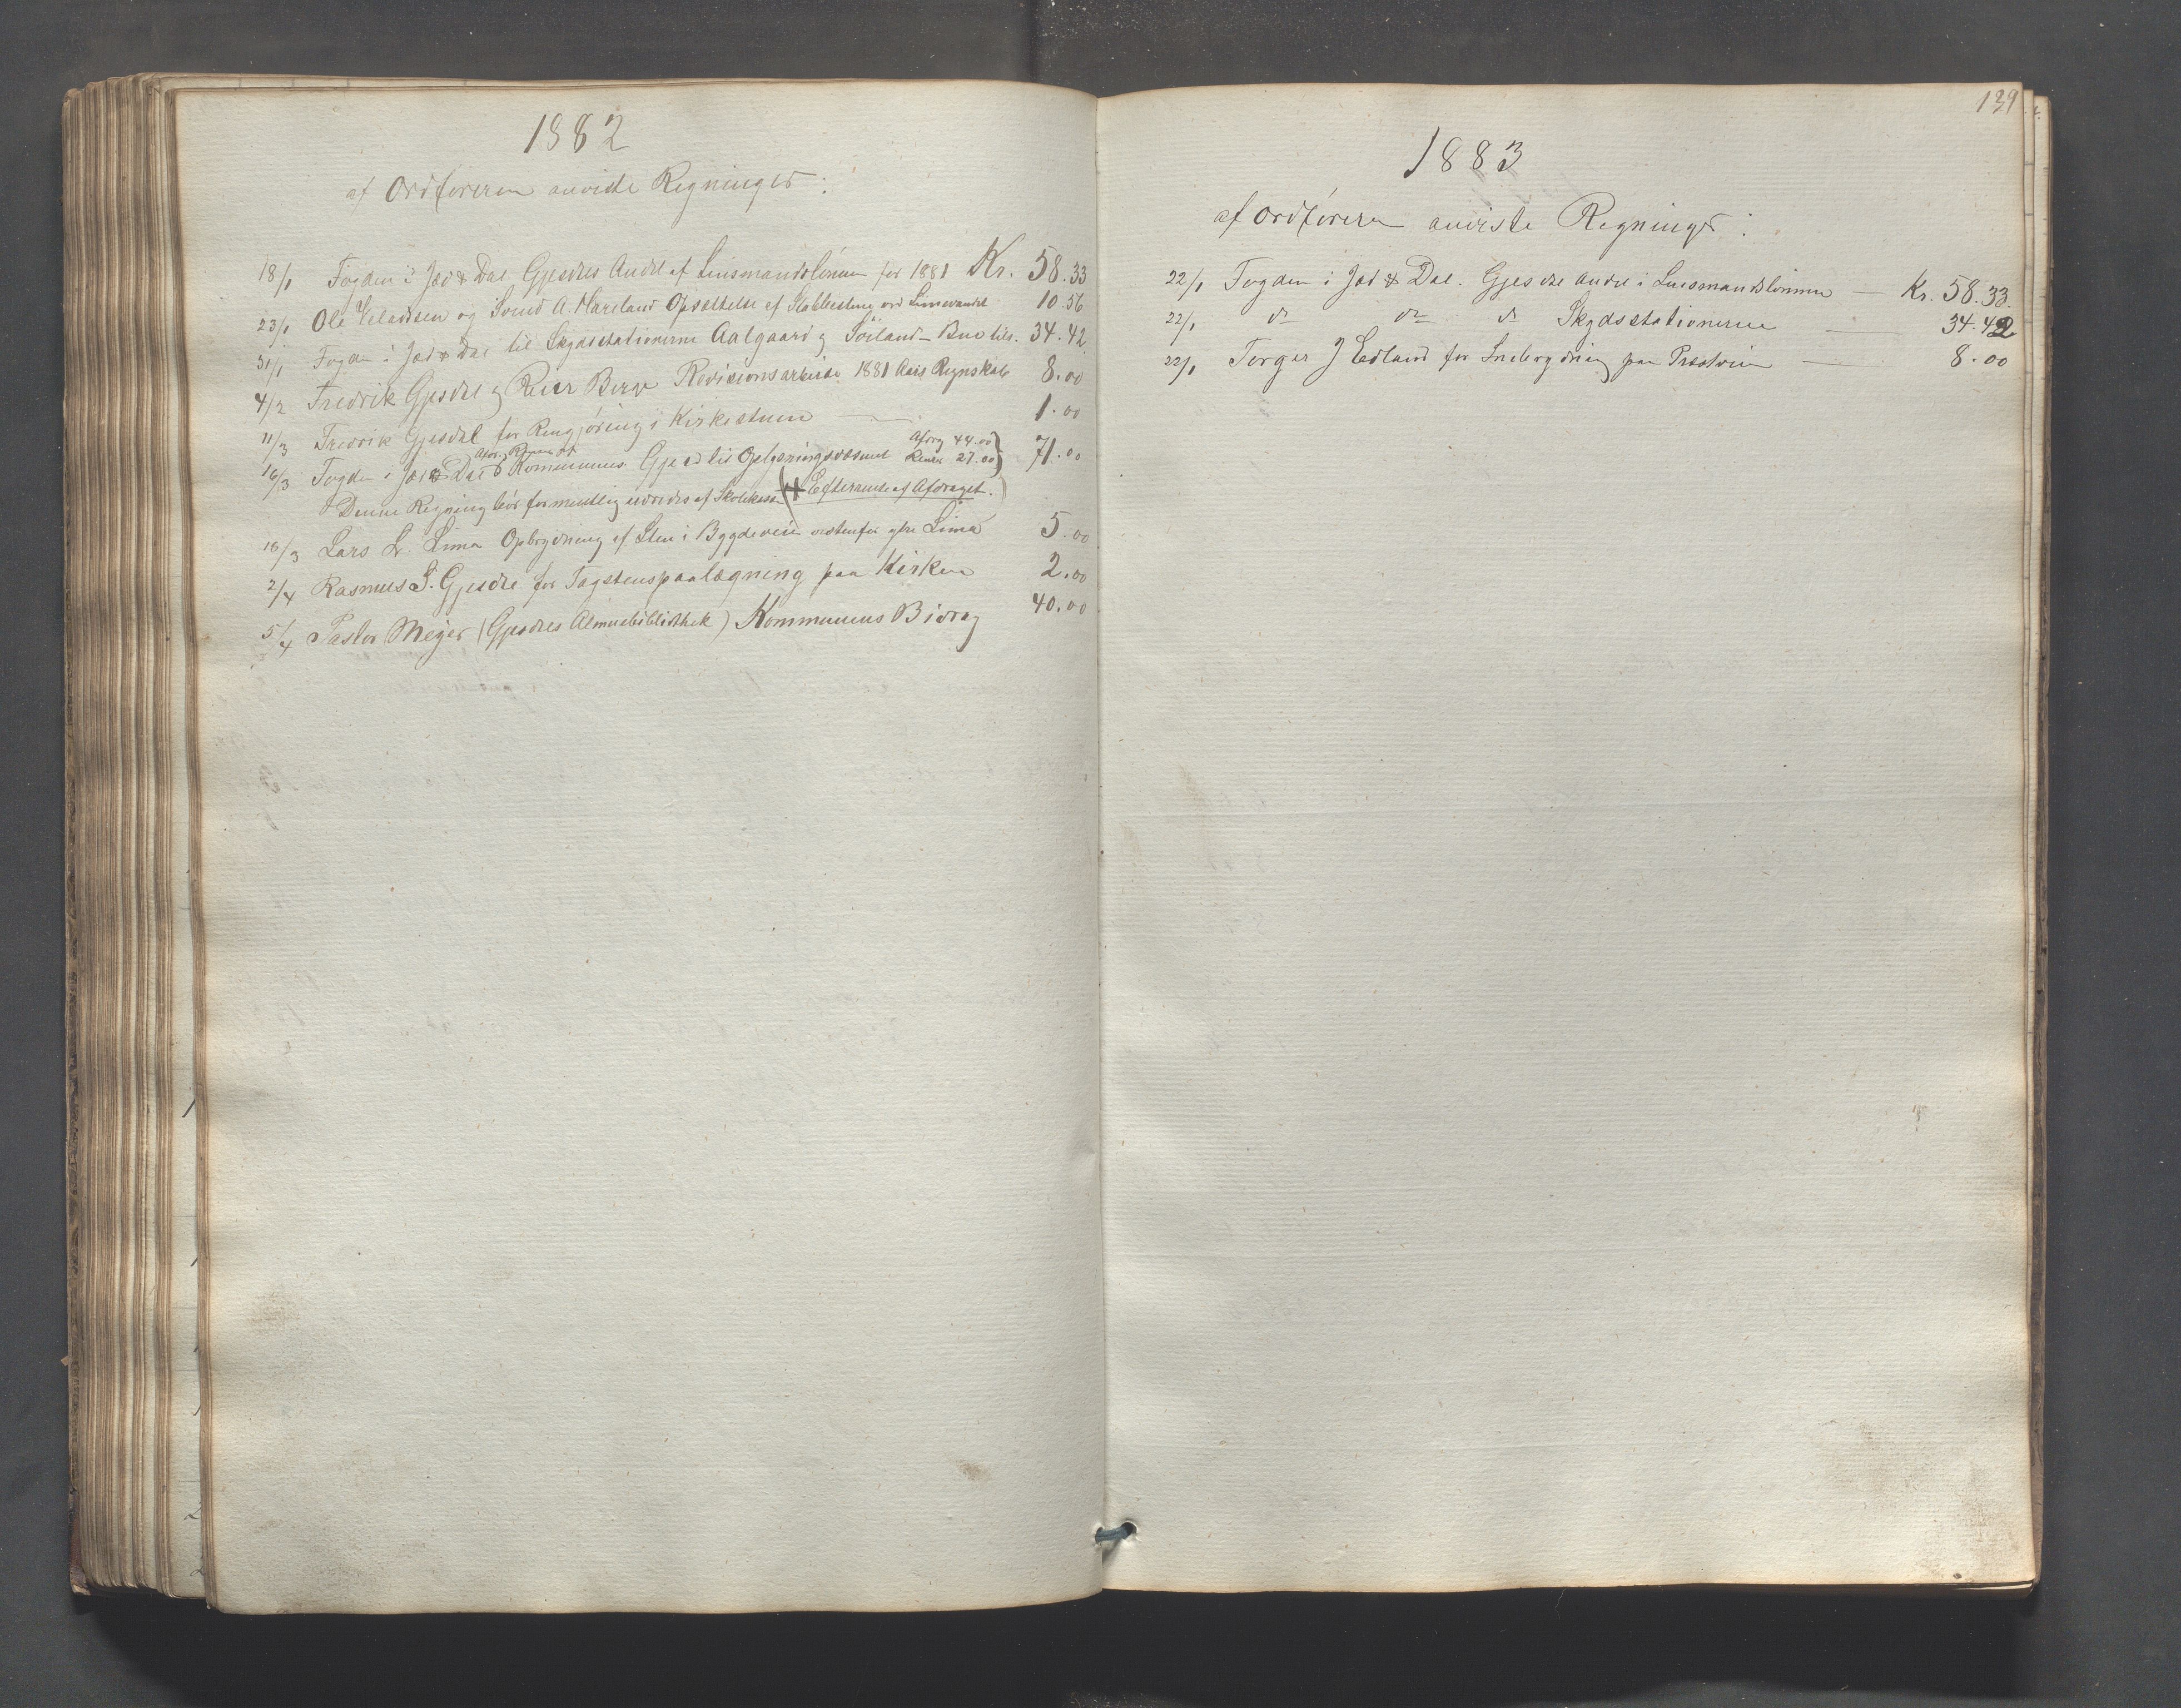 1882
af Ordføreren anviste Regninger:
18/1 Fogden i Jæd & Dal Gjesdals Andel af Lensmandslönnen for 1881 Kr. 58.33
23/1 Ole Eladsen og Svend A. Hareland Opsættelse af Stabbestene ved Limevandet 10.56
31/1 Fogden i Jæd & Dal til Skydsstationerne Aalgaard og Söiland - Bue tils. 34.42
4/2 Fredrik Gjesdal og Reier Berge Revisionsarbeide 1881 Aars Regnskab 8.00
11/3 Fredrik Gjesdal for Rengjöring i Kirkestuen 1.00
16/3 Fogden i Jæd & Dal Kommunens Gjæld til Oplysningsvæsenet Afdrag 44.00 Renter 27.00 71.00
Denne Regning bör formentlig udredes af Skolekassen (Efteramt af Afdraget.)
18/3 Lars L. Lima Opbrydning af Sten i Bygdeveien vestenfor ytre Lima 5.00
2/4 Rasmus S. Gjesdal for Tagstenspaalægning paa Kirken 2.00
5/4 Pastor Meyer (Gjesdals Almuebibliothek) Kommunens Bidrag 40.00
139
1883
af Ordføreren anviste Regninger:
22/1 Fogden i Jæd & Dal. Gjesdal Andel i Lensmandslönnen — Kr. 58.33
22/1 do do do Skydsstationerne — 34.42
22/1 Torger J Edland for Snebrydning paa Præstveien — 8.00